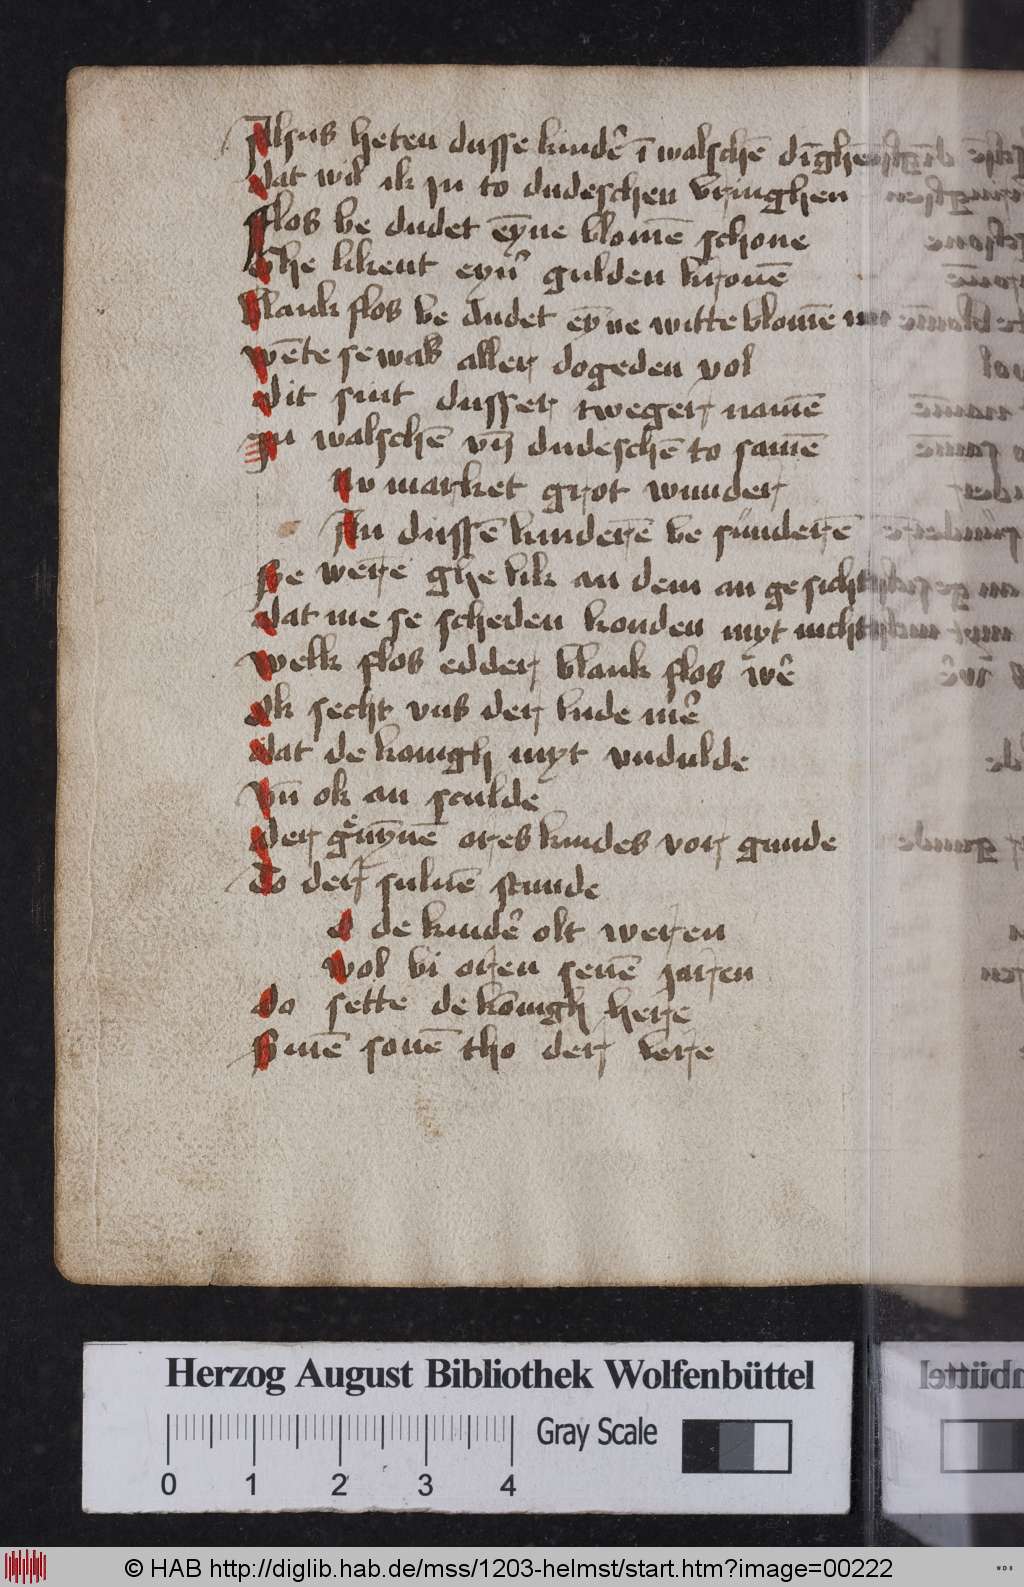 Alsus heten dusse kindẽ ī walschē dīghē
dat wil ik ju to dudeschen bringhen
Flos be dudet eyne blomē schone
Ghe likent eyner gulden kronē
Blank flos be dudet eyne witte blomē
wēte se was aller dogeden vol
Dit sint dusser tweger namē
Jn walschē vn̄ dudeschē to samē
Nv market grot wunder
An dussē kinderē be sunderē
Se werē ghe lik an dem an gesicht
dat me se scheden konden myt nicht
Welk flos edder blank flos wē
Ok secht vns der bude mē
Dat de konigh myt vndulde
Vn̄ ok an sculde
Der grēuynnē ores kindes vor gunde
To der suluē stunde
O de kindē olt weren
Wol bi oren seuē jaren
Do sette de konigh here
Sinē sonē tho der lere
Herzog August Bibliothek Wolfenbüttel
Gray Scale
0 1 2 3 4
© HAB http://diglib.hab.de/mss/1203-helmst/start.htm?image=00222